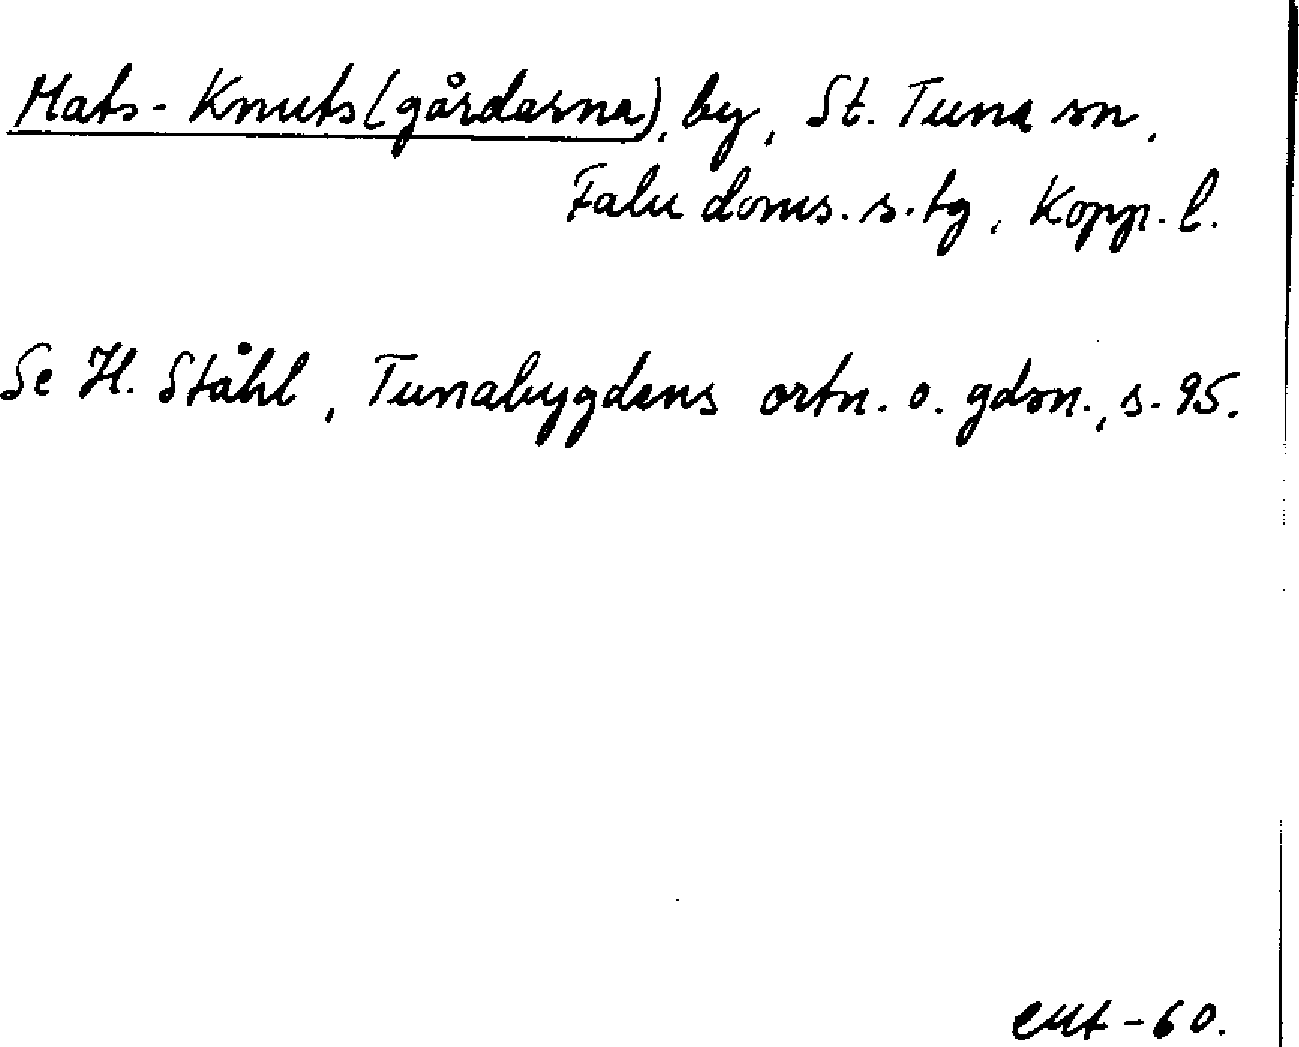 Mats-Knuts(gårdarna), by, St. Tuna sn,
Falu doms.s.tg, Kopp. l.
Se H. Ståhl, Tunabygdens ortn. o. gdsn., s. 95.
-60.